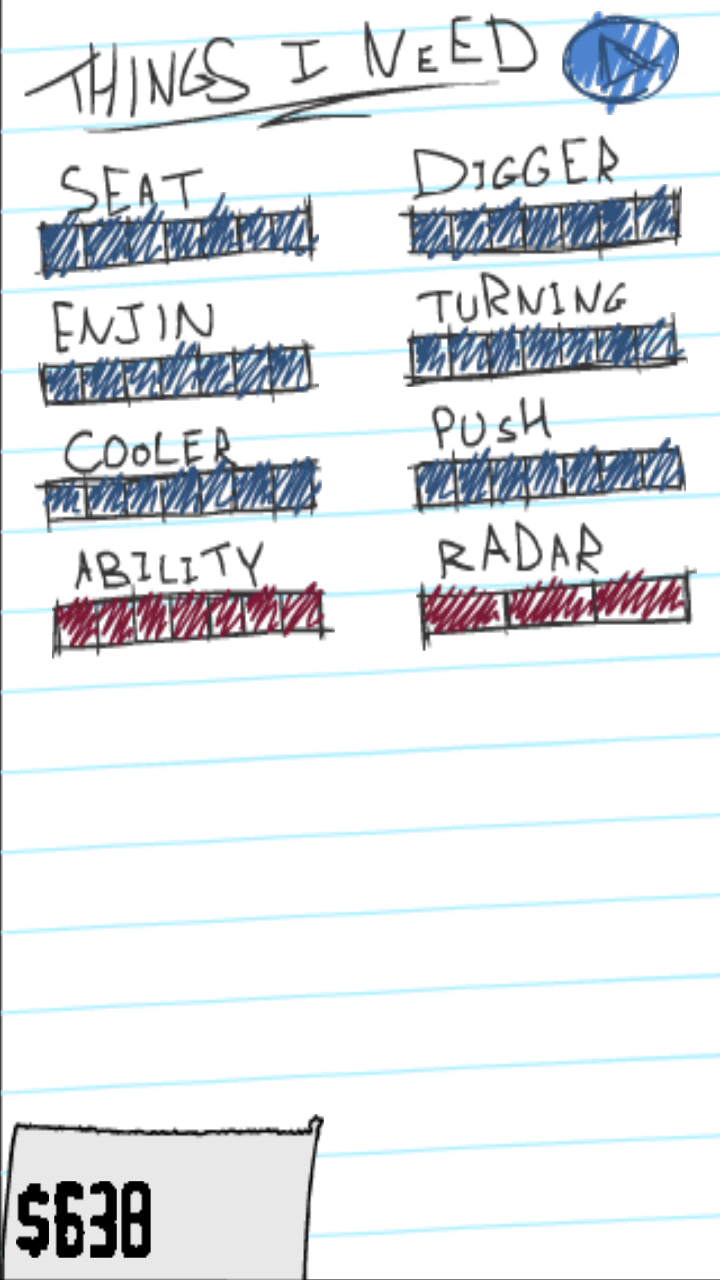 THINGS I NEED
SEAT DIGGER
ENJIN TURNING
COOLER PUSH
ABILITY RADAR
$638